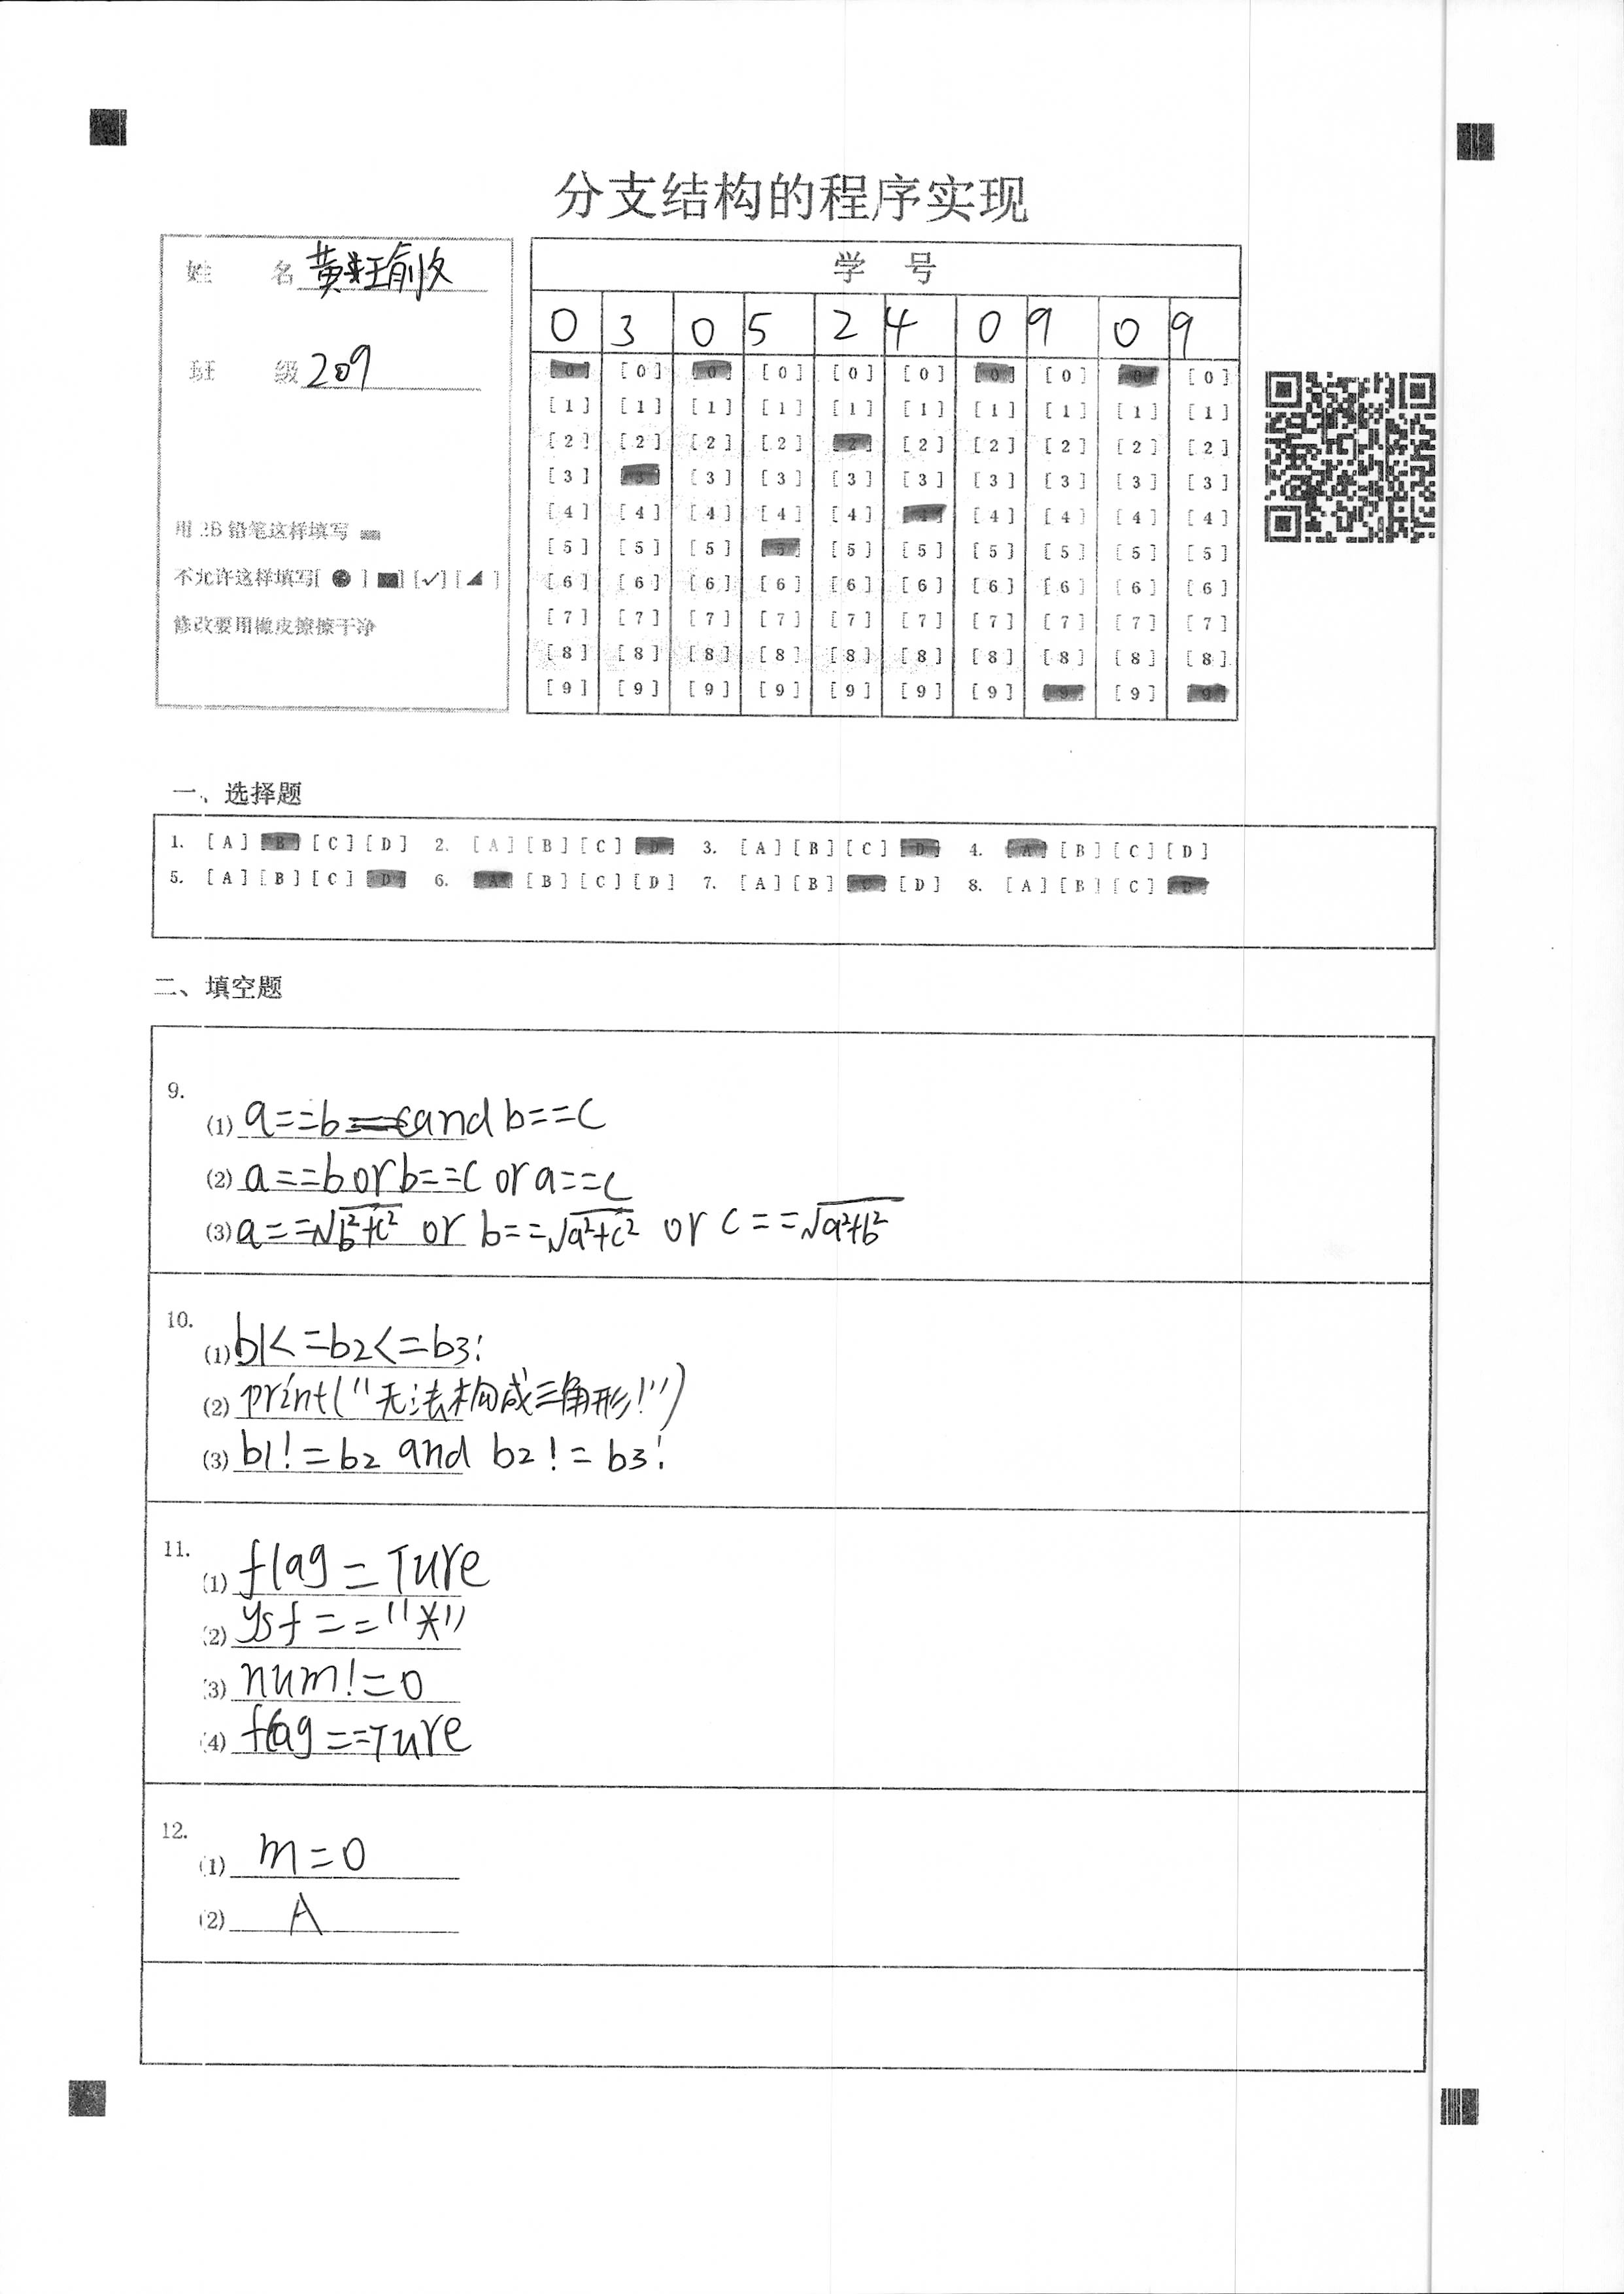 分支结构的程序实现
姓 名 黄
班 级 209
用 2B 铅笔这样填写
不允许这样填写[ ● ] ■] [✓] [◢ ]
修改要用橡皮擦擦干净
学 号
0 3 0 5 2 4 0 9 0 9
[0] [0] [0] [0] [0] [0] [0] [0] [0] [0]
[1] [1] [1] [1] [1] [1] [1] [1] [1] [1]
[2] [2] [2] [2] [2] [2] [2] [2] [2] [2]
[3] [3] [3] [3] [3] [3] [3] [3] [3] [3]
[4] [4] [4] [4] [4] [4] [4] [4] [4] [4]
[5] [5] [5] [5] [5] [5] [5] [5] [5] [5]
[6] [6] [6] [6] [6] [6] [6] [6] [6] [6]
[7] [7] [7] [7] [7] [7] [7] [7] [7] [7]
[8] [8] [8] [8] [8] [8] [8] [8] [8] [8]
[9] [9] [9] [9] [9] [9] [9] [9] [9] [9]
一、选择题
1. [A] [B] [C] [D] 2. [A] [B] [C] [D] 3. [A] [B] [C] [D] 4. [A] [B] [C] [D]
5. [A] [B] [C] [D] 6. [A] [B] [C] [D] 7. [A] [B] [C] [D] 8. [A] [B] [C] [D]
二、填空题
9.
(1) a==b and b==c
(2) a==b or b==c or a==c
(3) a==√b²+c² or b==√a²+c² or c==√a²+b²
10.
(1) b1<=b2<=b3:
(2) print("无法构成三角形!")
(3) b1!=b2 and b2!=b3:
11.
(1) flag=Ture
(2) ysf=="*"
(3) num!=0
(4) flag==Ture
12.
(1) m=0
(2) A